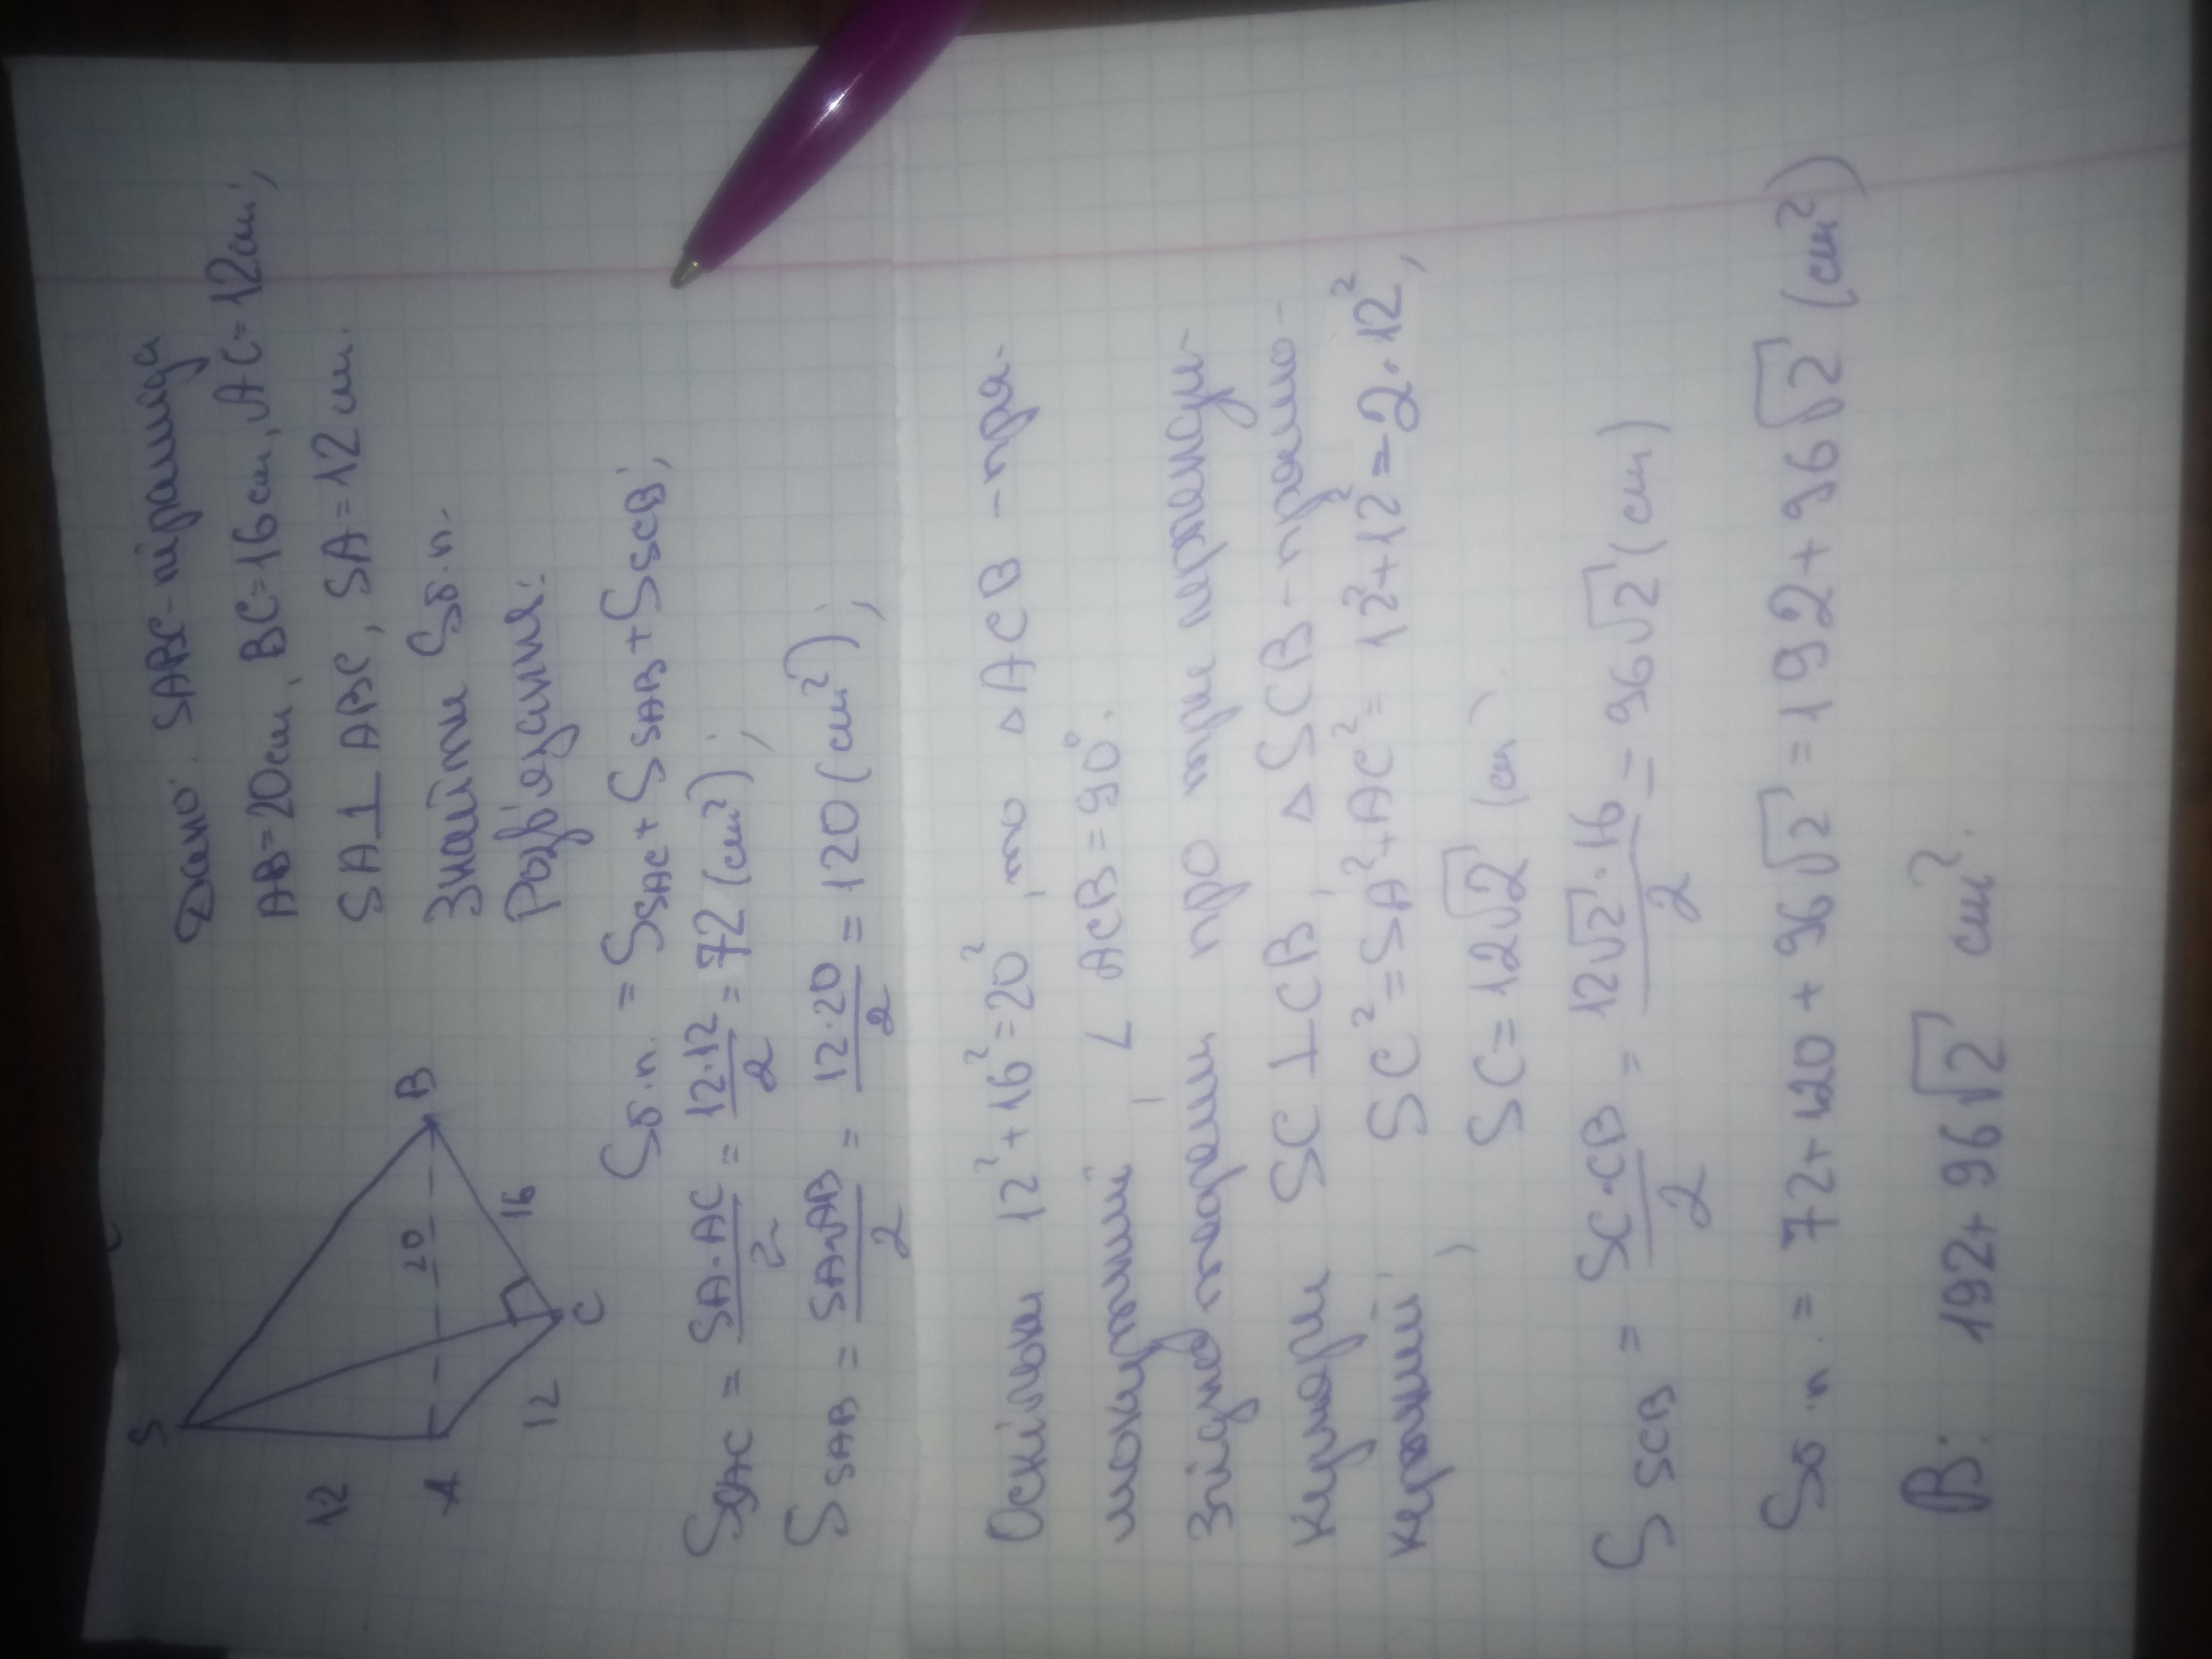 Дано: SABC-піраміда
AB=20см, BC=16см, AC=12см;
SA⊥ABC, SA=12см.
Знайти Sб.п.
Розв'язання:
S
12
A
20
B
16
C
12
Sб.п. = SSAC + SSAB + SSCB;
SSAC = SA·AC/2 = 12·12/2 = 72 (см²);
SSAB = SA·AB/2 = 12·20/2 = 120 (см²);
Оскільки 12²+16²=20², то △ACB -пря-
мокутний, ∠ACB=90°.
Згідно теореми про три перпенди-
куляри SC⊥CB, △SCB-прямо-
кутний, SC²=SA²+AC²=12²+12²=2·12²,
SC=12√2 (см).
SSCB = SC·CB/2 = 12√2·16/2 = 96√2 (см)
Sб.п. = 72+120+96√2 = 192+96√2 (см²)
В: 192+96√2 см².